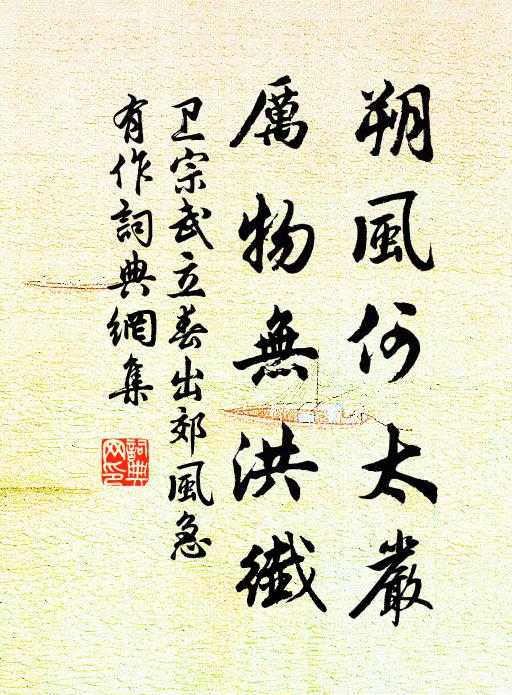 朔風何太嚴
厲物無洪纖
卫宗武立春出郊風急
有作詞典網集
詞典
网印